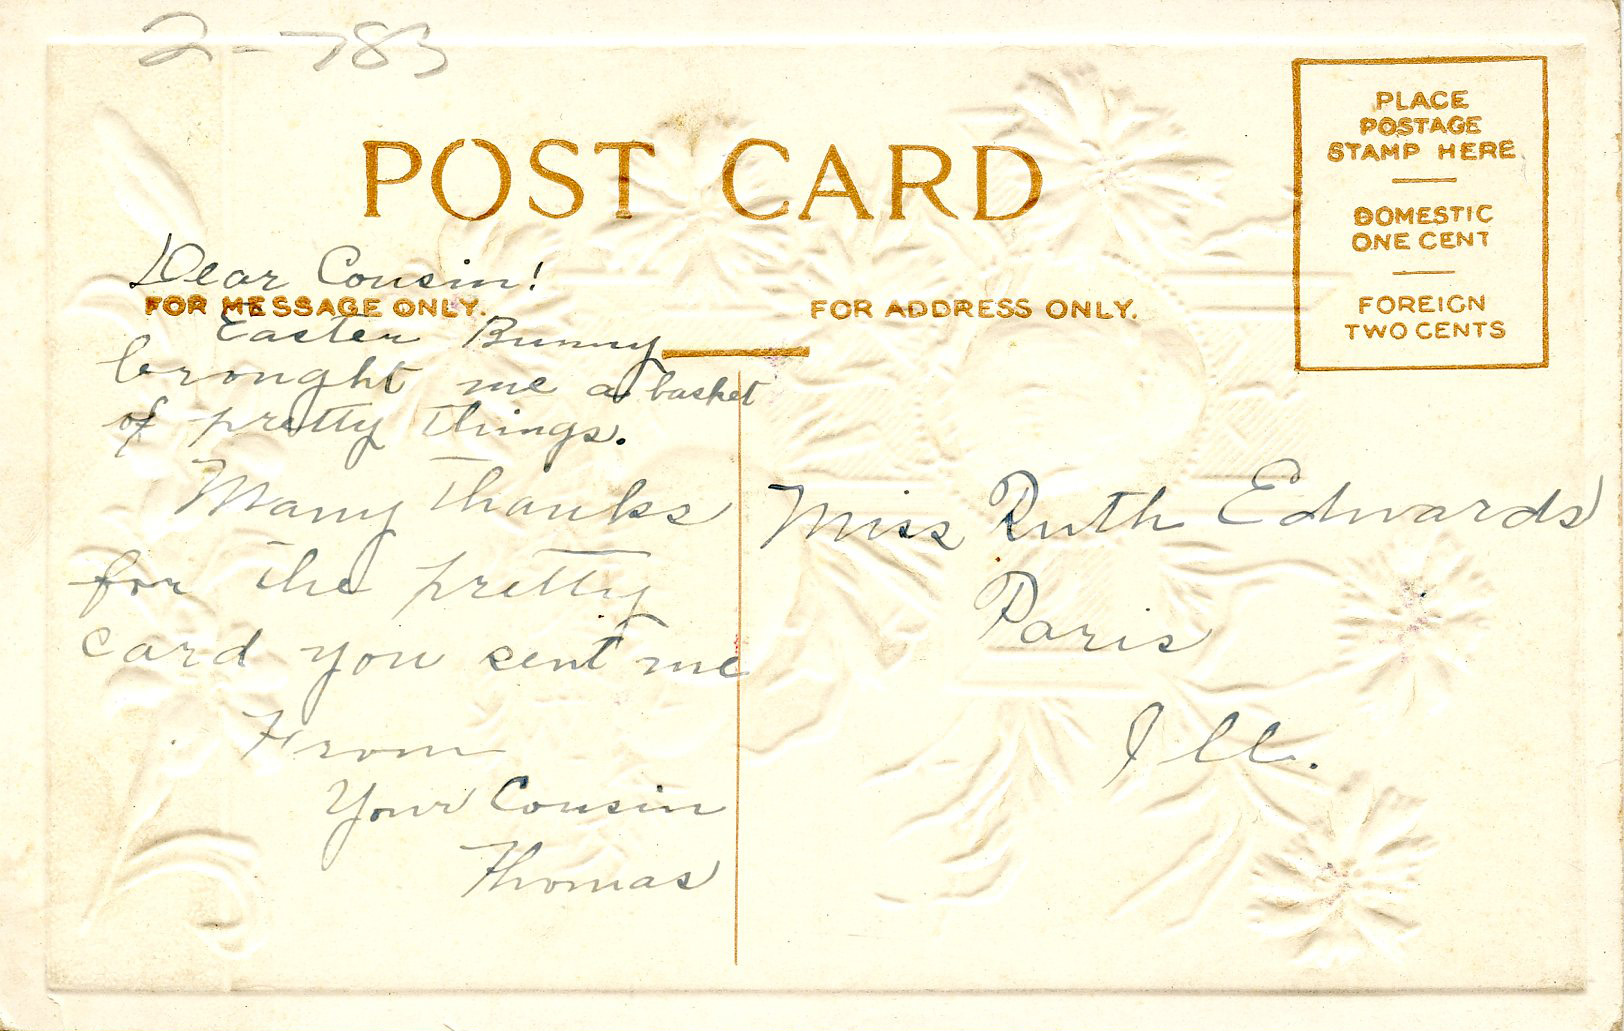 2-783
POST CARD
PLACE
POSTAGE
STAMP HERE
DOMESTIC
ONE CENT
FOREIGN
TWO CENTS
Dear Cousin!
FOR MESSAGE ONLY.
Easter Bunny
brought me a basket
of pretty things.
Many thanks
for the pretty
card you sent me
From
Your Cousin
Thomas
FOR ADDRESS ONLY.
Miss Ruth Edwards
Paris
Ill.